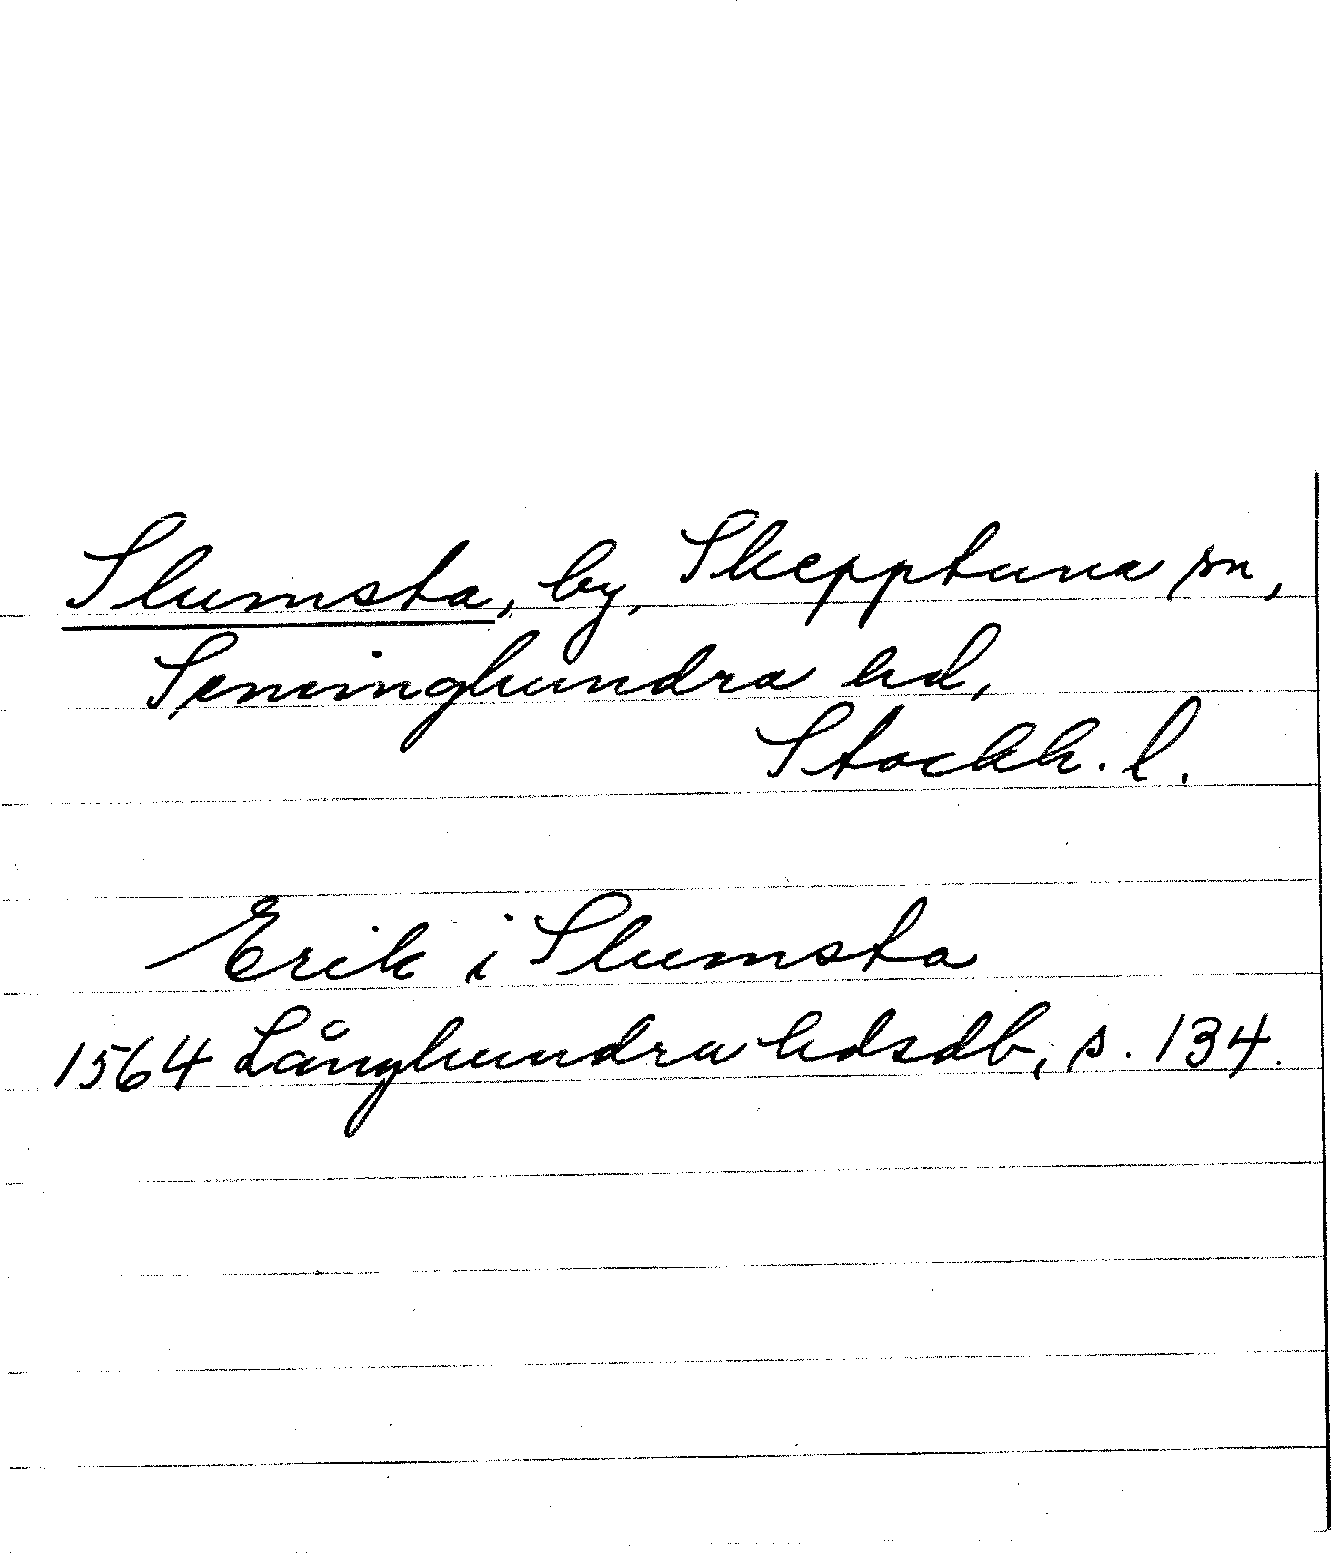 Slumsta, by, Skepptuna sn,
Seminghundra hd,
Stockh. l.
Erik i Slumsta
1564 Långhundra hdsdb, s. 134.